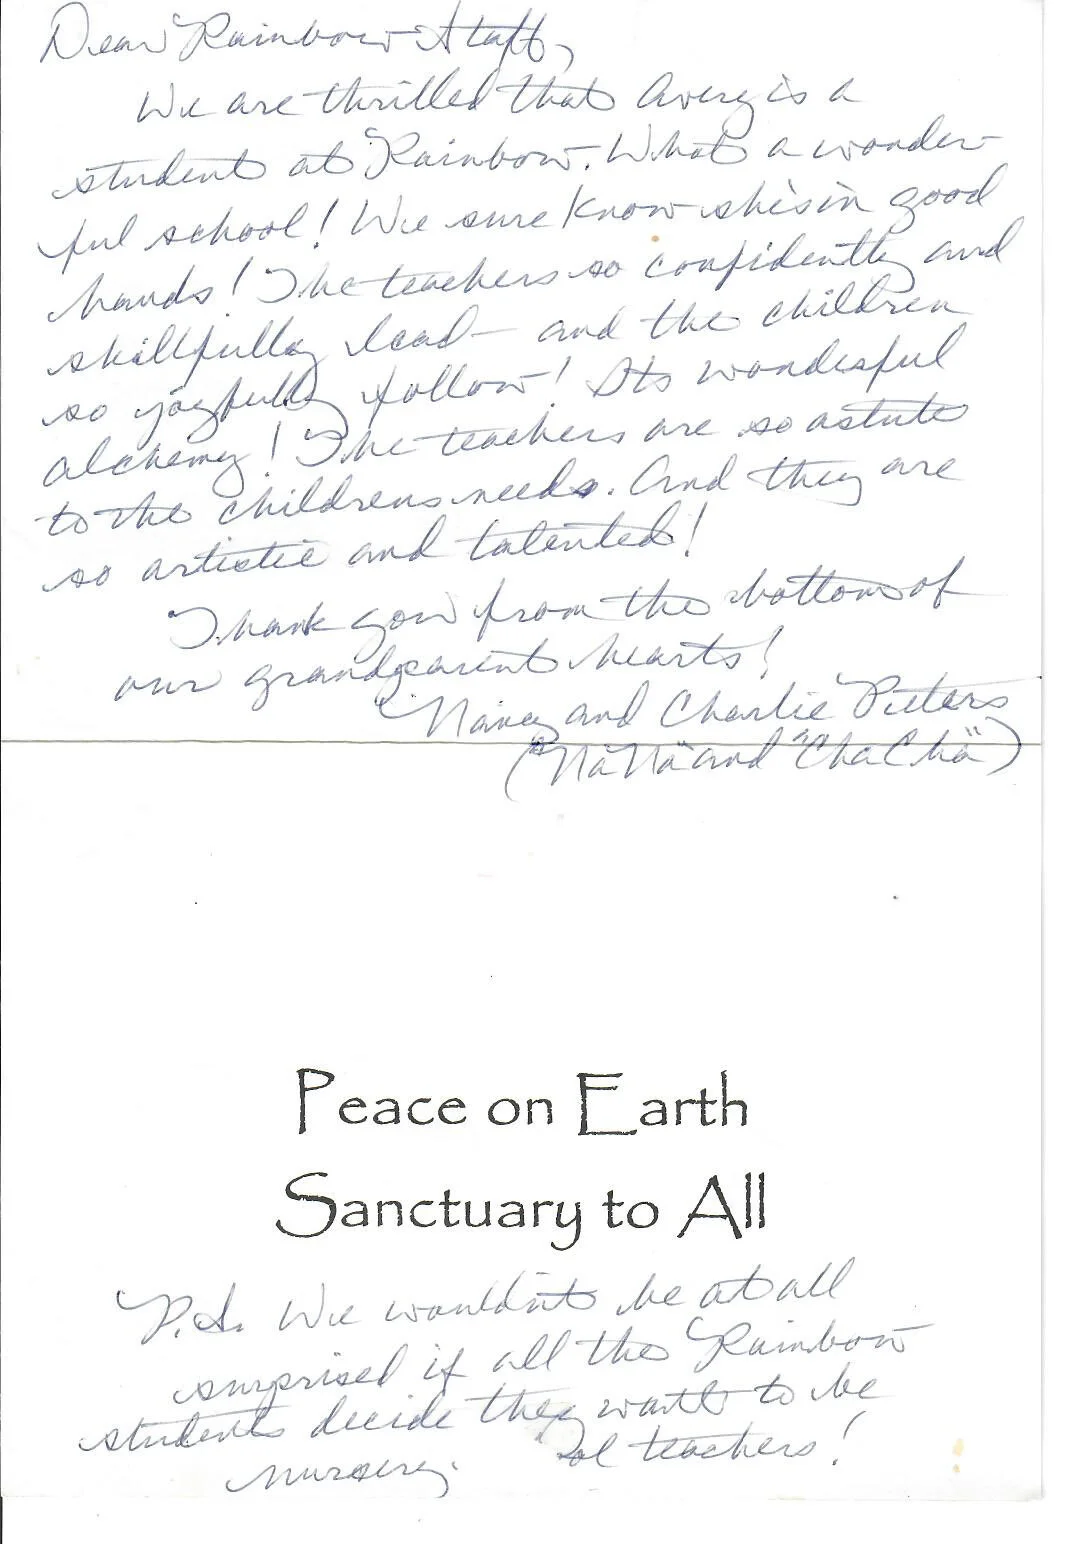 Dear Rainbow Staff,
We are thrilled that Avery is a
student at Rainbow. What a wonder-
ful school! We sure know she's in good
hands! The teachers so confidently and
skillfully lead - and the children
so joyfully follow! Its wonderful
alchemy! The teachers are so astute
to the childrens needs. And they are
so artistic and talented!
Thank you from the bottom of
our grandparent hearts!
Nancy and Charlie Pieters
("Na Na" and "Cha Cha")
Peace on Earth
Sanctuary to All
P.S. We wouldn't be at all
surprised if all the Rainbow
students decide they want to be
nursery teachers!